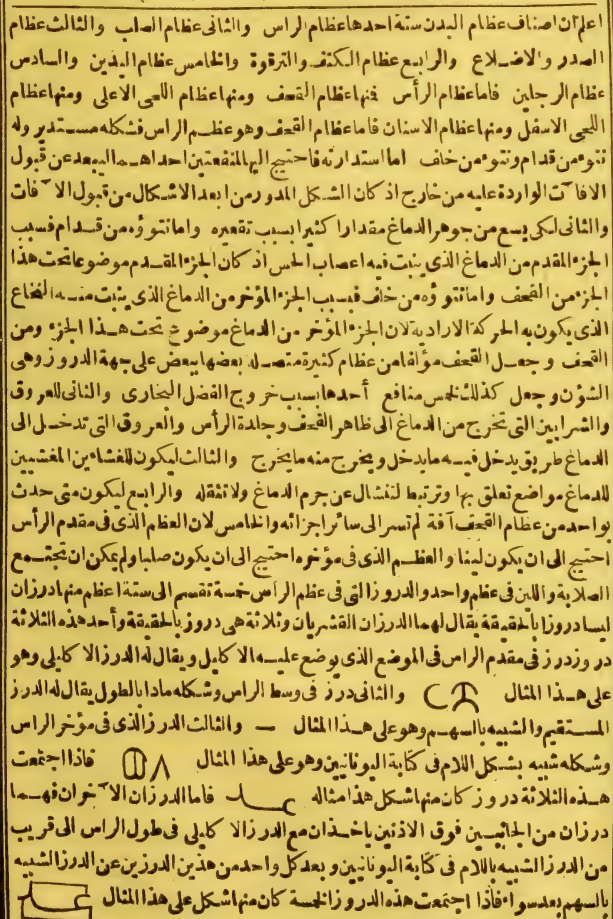 اعلم ان اصناف عظام البدن ستة احدها عظام الراس والثانى عظام الصلب والثالث عظام
الصدر والاضلاع والرابع عظام الكتف والترقوة والخامس عظام اليدين والسادس
عظام الرجلين فاما عظام الرأس فمنها عظام القحف ومنها عظام اللحى الاعلى ومنها عظام
اللحى الاسفل ومنها عظام الاسنان فاما عظام القحف وهو عظم الراس فشكله مستدير وله
نتو من قدام ونتو من خلف اما استدارته فاحتيج اليها لمنفعتين احداهما ليبعد عن قبول
الافات الواردة عليه من خارج اذ كان الشكل المدور من ابعد الاشكال من قبول الا فات
والثانى لكى يسع من جوهر الدماغ مقدارا كثيرا بسبب تقعيره واما نتوؤه من قدام فبسبب
الجزء المقدم من الدماغ الذى ينبت فيه اعصاب الحس اذ كان الجزء المقدم موضوعا تحت هذا
الجزء من القحف واما نتوؤه من خلف فبسبب الجزء المؤخر من الدماغ الذى ينبت منه النخاع
الذى يكون به الحركة الارادية لان الجزء المؤخر من الدماغ موضوع تحت هذا الجزء ومن
القحف وجعل القحف مؤلفا من عظام كثيرة متصلة بعضها ببعض على جهة الدروز وهى
الشؤن وجعل كذلك لخمس منافع أحدها بسبب خروج الفضل البخارى والثانى للعروق
والشرايين التى تخرج من الدماغ الى ظاهر القحف وجلدة الرأس والعروق التى تدخل الى
الدماغ طريق يدخل فيه ما يدخل ويخرج منه ما يخرج والثالث ليكون للغشاءين المغشيين
للدماغ مواضع تعلق بها وترتبط لتنشال عن جرم الدماغ ولا تثقله والرابع ليكون متى حدث
بواحد من عظام القحف آفة لم تسر الى سائر اجزائه والخامس لان العظم الذى فى مقدم الرأس
احتيج الى ان يكون لينا والعظم الذى فى مؤخره احتيج الى ان يكون صلبا ولم يمكن ان تجتمع
الصلابة واللين فى عظم واحد والدروز التى فى عظم الراس خمسة تقسم الى ستة اعظم منها درزان
ليسا دروزا بالحقيقة يقال لهما الدرزان القشريان وثلاثة هى دروز بالحقيقة وأحد هذه الثلاثة
دروز درز فى مقدم الراس فى الموضع الذى يوضع عليه الاكايل ويقال له الدرز الاكايلى وهو
على هذا المثال والثانى درز فى وسط الراس وشكله مادا بالطول يقال له الدرز
المستقيم والشبيه بالسهم وهو على هذا المثال — والثالث الدرز الذى فى مؤخر الراس
وشكله شبيه بشكل اللام فى كتابة اليونانيين وهو على هذا المثال Λ فاذا اجتمعت
هذه الثلاثة دروز كان منها شكل هذا مثاله فاما الدرزان الآخران فهما
درزان من الجانبين فوق الاذنين ياخذان مع الدرز الاكايلى فى طول الراس الى قريب
من الدرز الشبيه باللام فى كتابة اليونانيين وبعد كل واحد من هذين الدرزين عن الدرز الشبيه
بالسهم بعد سواء فاذا اجتمعت هذه الدروز الخمسة كان منها شكل على هذا المثال